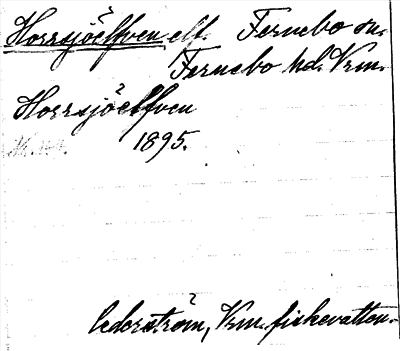 Horrsjöelfven elf. Fernebo sn.
Fernebo hd. Vrm.
Horrsjöelfven
1895.
Cederström, Vrm. fiskevatten.